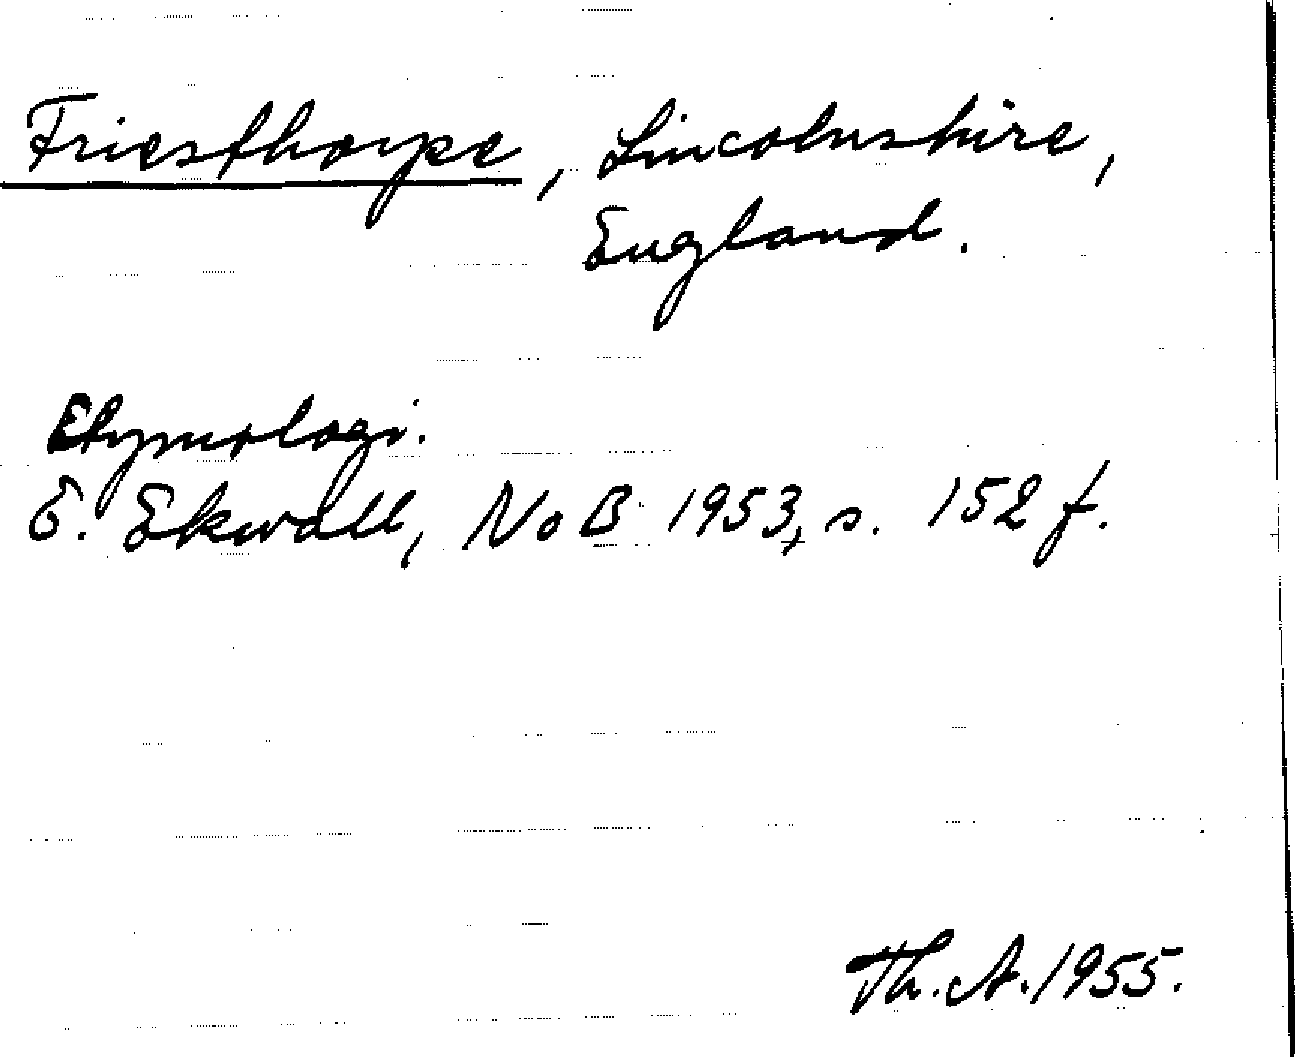 Friesthorpe, Lincolnshire,
England.
Etymologi.
E. Ekwall, NoB 1953, s. 152 f.
Th. A. 1955.